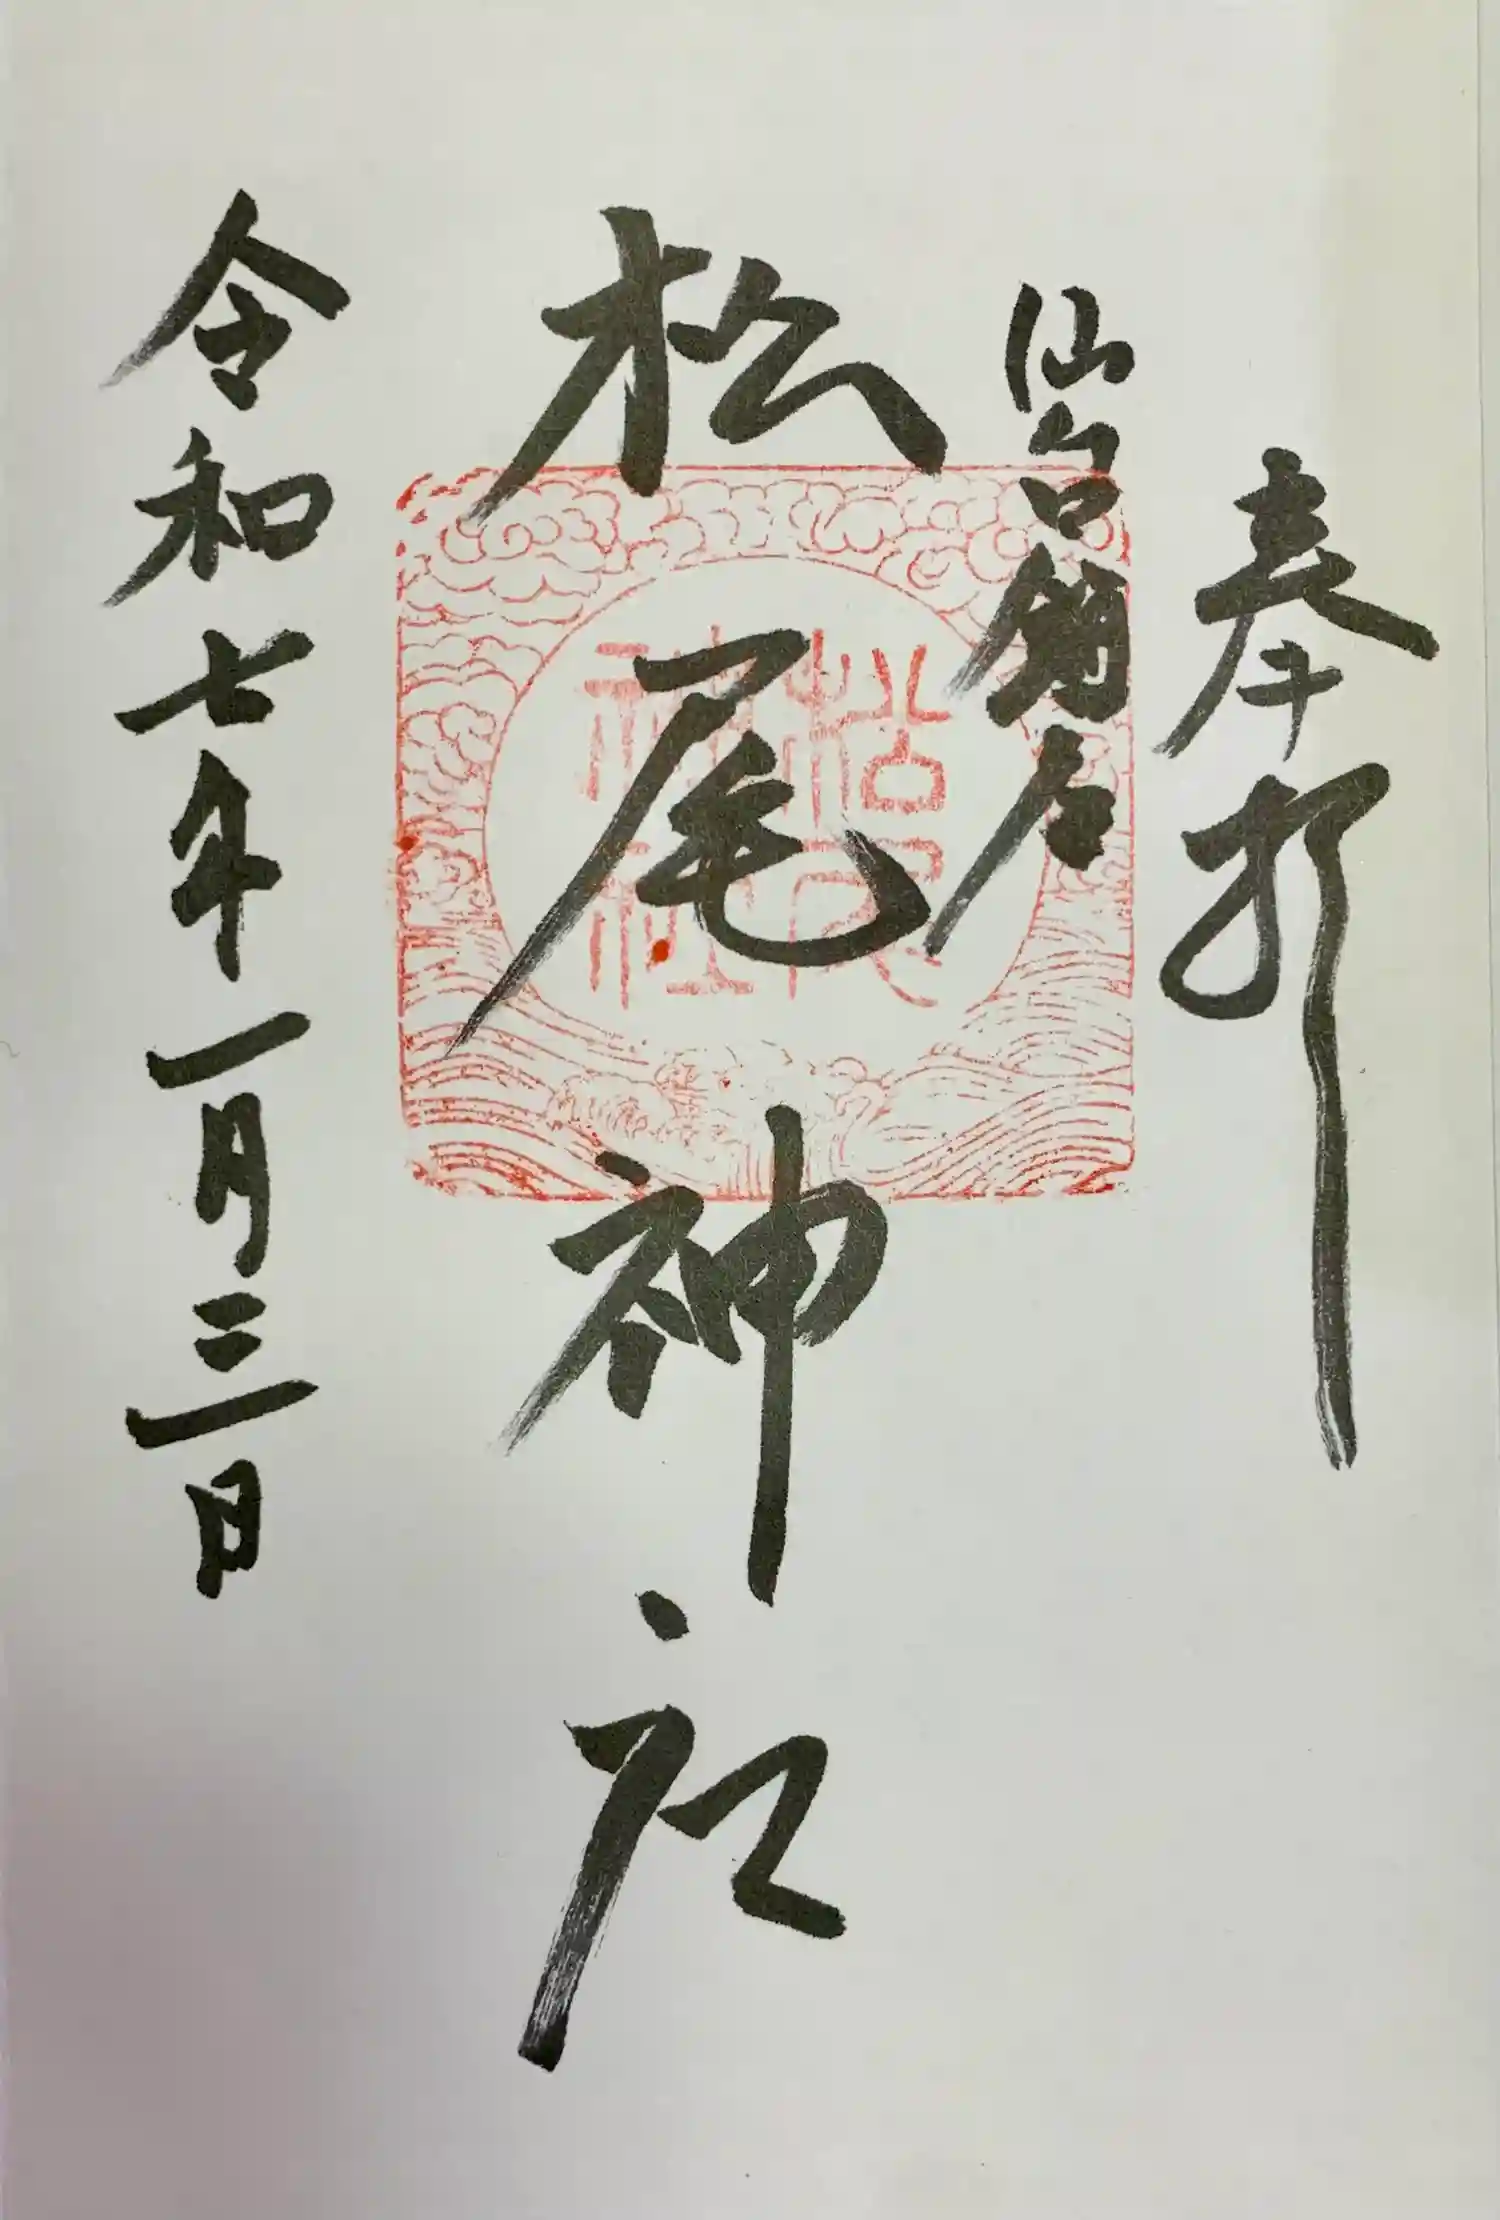 奉拝
仙台
松尾神社
令和七年一月三日
松尾
神社